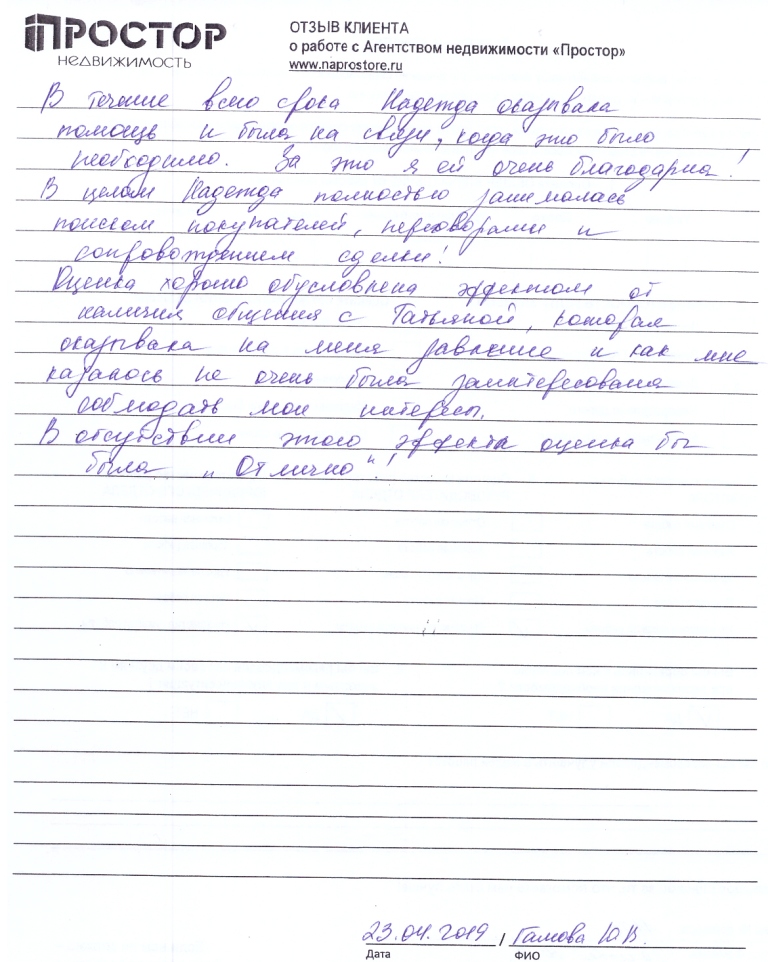 ПРОСТОР
НЕДВИЖИМОСТЬ
ОТЗЫВ КЛИЕНТА
о работе с Агентством недвижимости «Простор»
www.naprostore.ru
В течение всего срока Надежда оказывала
помощь и была на связи, когда это было
необходимо. За это я ей очень благодарна!
В целом Надежда полностью занималась
поиском покупателей, переговорами и
сопровождением сделки!
Оценка хорошо обусловлена эффектом от
наличия общения с Татьяной, которая
оказывала на меня давление и как мне
казалось не очень была заинтересована
соблюдать мои интересы.
В отсутствии этого эффекта оценка бы
была „Отлично"!
23.04.2019 / Гамова Ю.В.
Дата ФИО